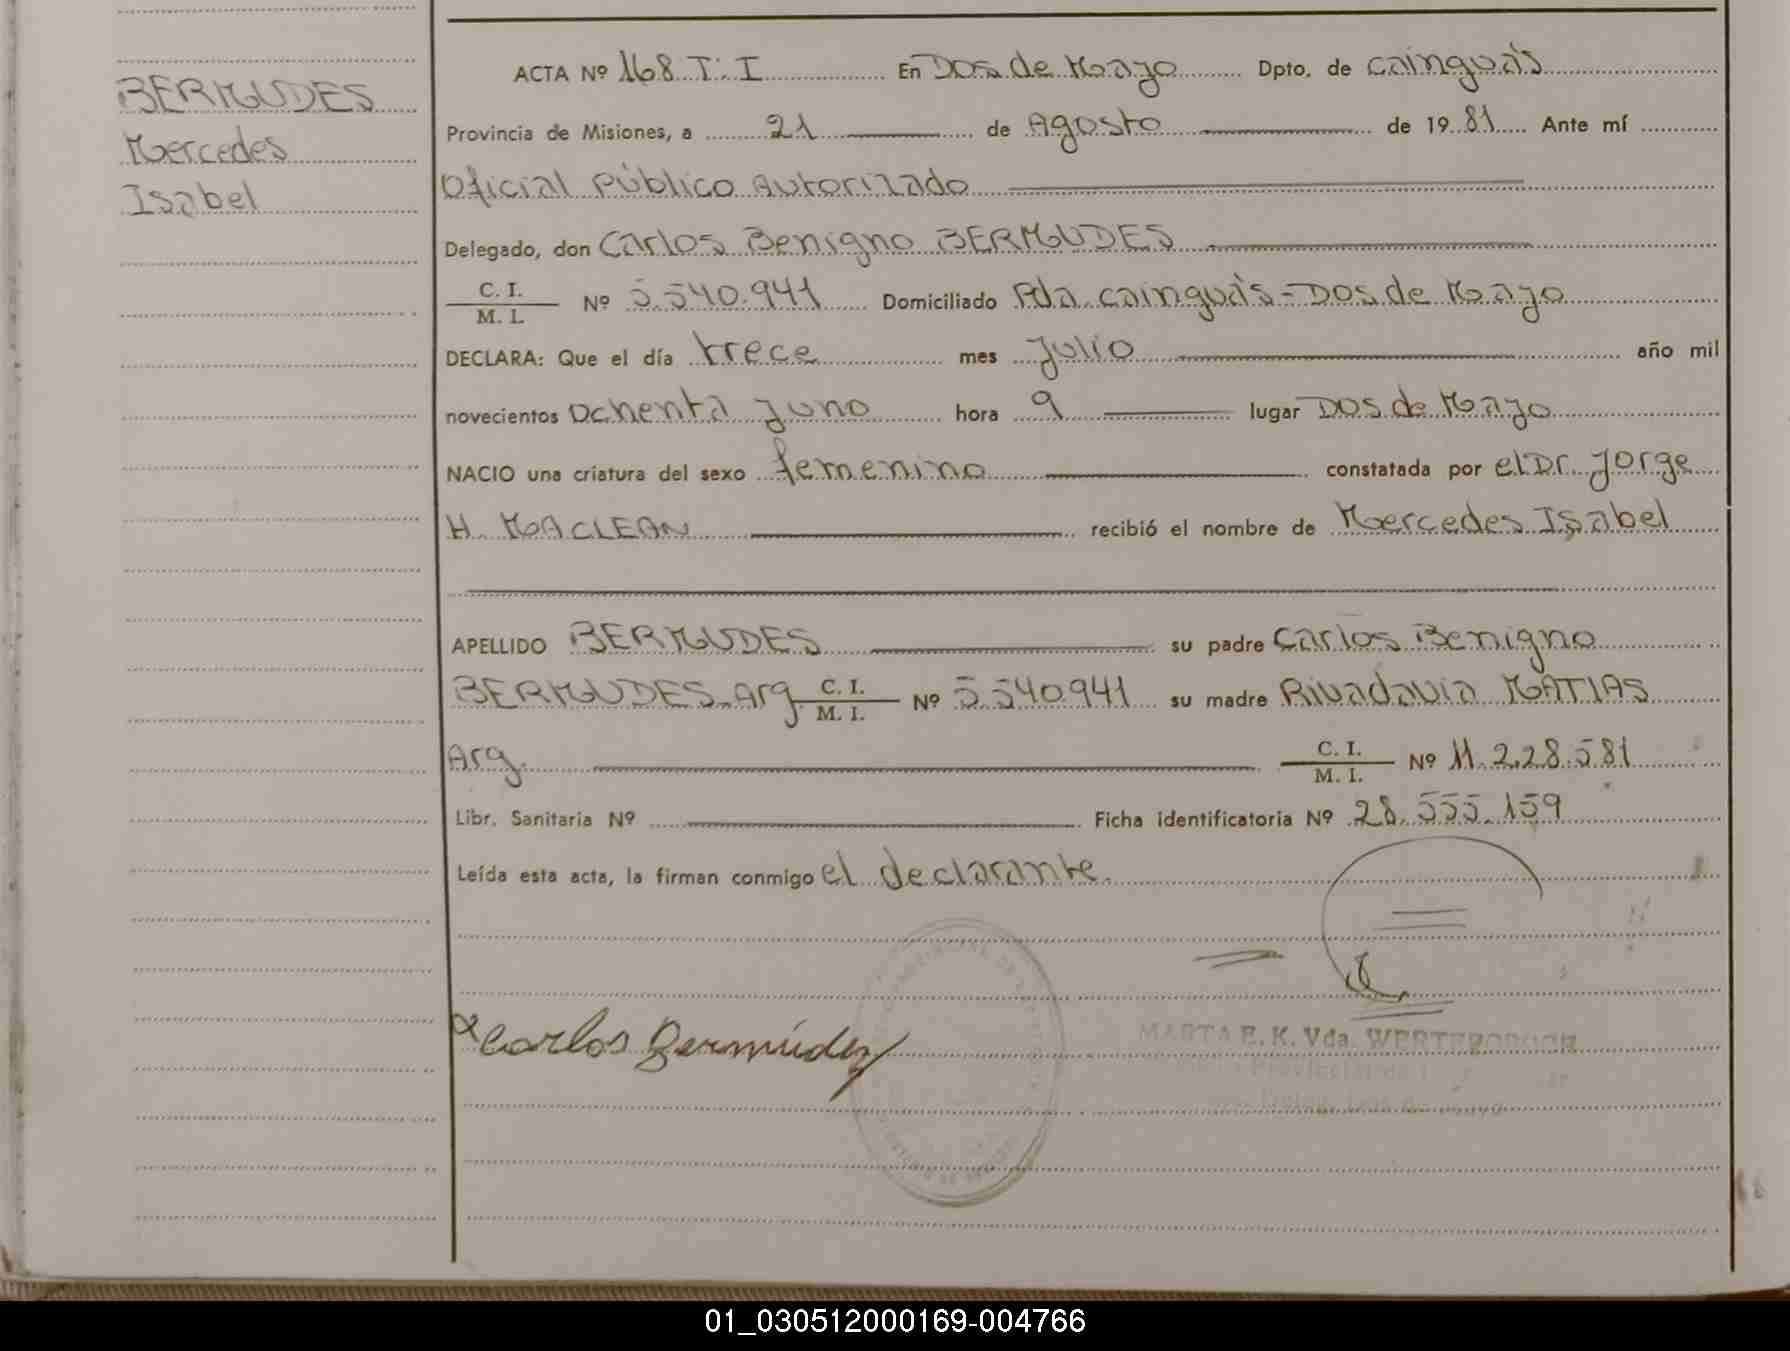 BERMUDES
Mercedes
Isabel
ACTA Nº 168 T: I En Dos de Mayo Dpto. de Cainguás
Provincia de Misiones, a 21 de Agosto de 1981 Ante mí
Oficial Público Autorizado
Delegado, don Carlos Benigno BERMUDES
C. I. / M. I. Nº 5.540.941 Domiciliado Pda. Cainguás - Dos de Mayo
DECLARA: Que el día trece mes Julio año mil
novecientos ochenta y uno hora 9 lugar Dos de Mayo
NACIO una criatura del sexo femenino constatada por el Dr. Jorge
H. MACLEAN recibió el nombre de Mercedes Isabel
APELLIDO BERMUDES su padre Carlos Benigno
BERMUDES. Arg. C. I. / M. I. Nº 5.540.941 su madre Rivadavia MATIAS
Arg. C. I. / M. I. Nº 11.228.581
Libr. Sanitaria Nº Ficha identificatoria Nº 28.555.159
Leída esta acta, la firman conmigo el declarante.
Carlos Bermúdez
MARTA E. K. Vda.
01_030512000169-004766